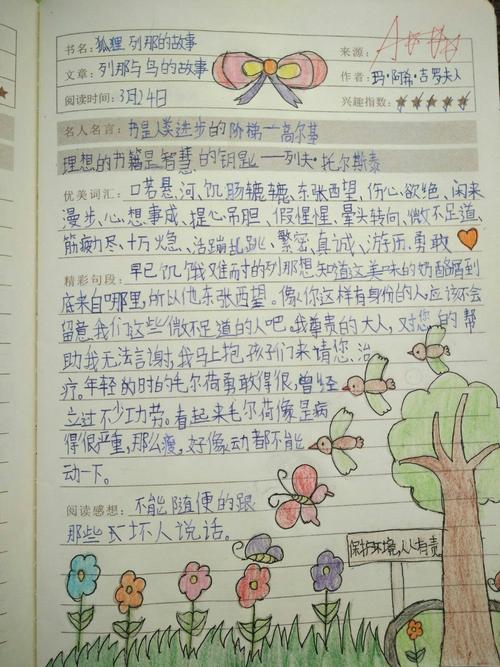 书名：狐狸列那的故事 来源：
文章：列那与鸟的故事 作者：玛·阿希·吉罗夫人
阅读时间：3月24日 兴趣指数：★★★★★
名人名言：书是人类进步的阶梯—高尔基
理想的书籍是智慧的钥匙——列夫·托尔斯泰
优美词汇：口若悬河、饥肠辘辘、东张西望、伤心欲绝、闲来
漫步、心想事成、提心吊胆、假惺惺、晕头转向、微不足道、
筋疲力尽、十万火急、活蹦乱跳、繁密、真诚、游历、勇敢
精彩句段：早已饥饿难耐的列那想知道这美味的奶酪到
底来自哪里，所以他东张西望。像你这样有身份的人应该不会
留意我们这些微不足道的人吧。我尊贵的大人，对您的帮
助我无法言谢，我马上抱孩子们来请您治
疗。年轻的时的毛尔荷勇敢得很，曾经
立过不少功劳。看起来毛尔荷像是病
得很严重，那么瘦，好像动都不能
动一下。
阅读感想：不能随便的跟
那些坏人说话。
保护环境，人人有责